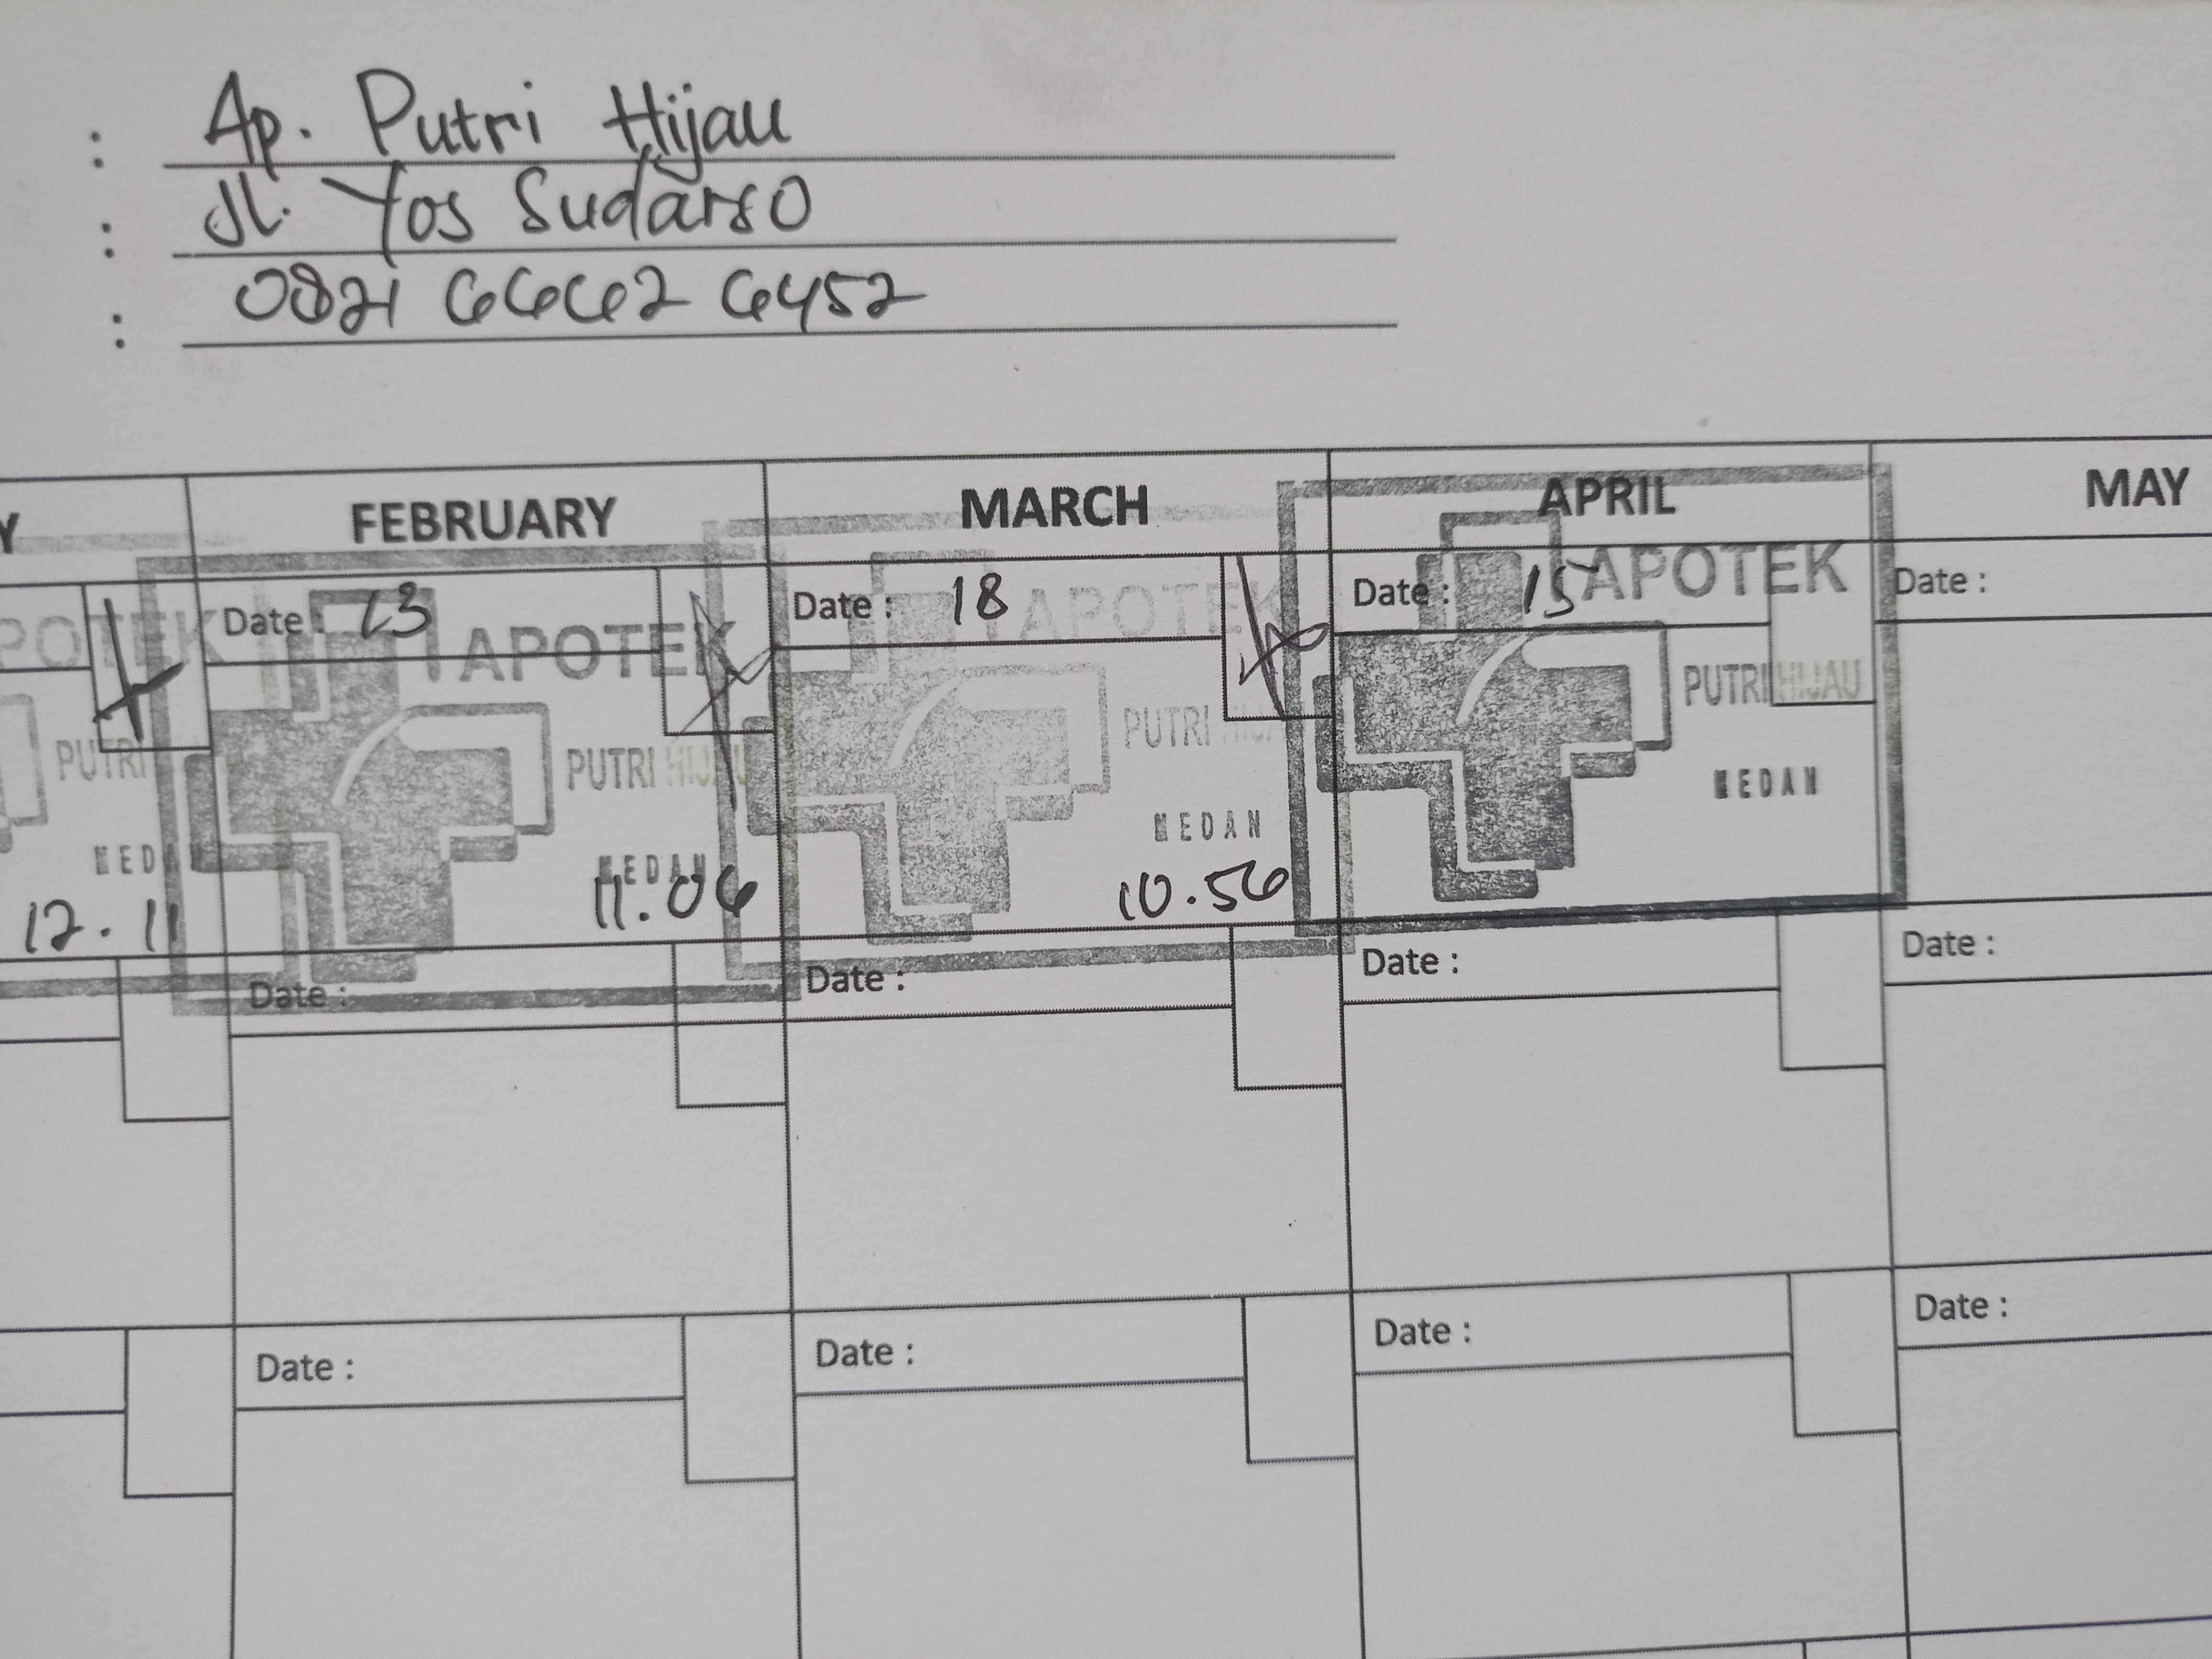 : Ap. Putri Hijau
: Jl. Yos Sudarso
: 0821 6662 6452
Y FEBRUARY MARCH APRIL MAY
Date : 13 Date : 18 Date : 15 Date :
APOTEK APOTEK APOTEK APOTEK
PUTRI PUTRI HIJAU PUTRI HIJAU PUTRI HIJAU
MED MEDAN MEDAN MEDAN
12.11 11.06 10.56
Date : Date : Date : Date :
Date : Date : Date : Date :